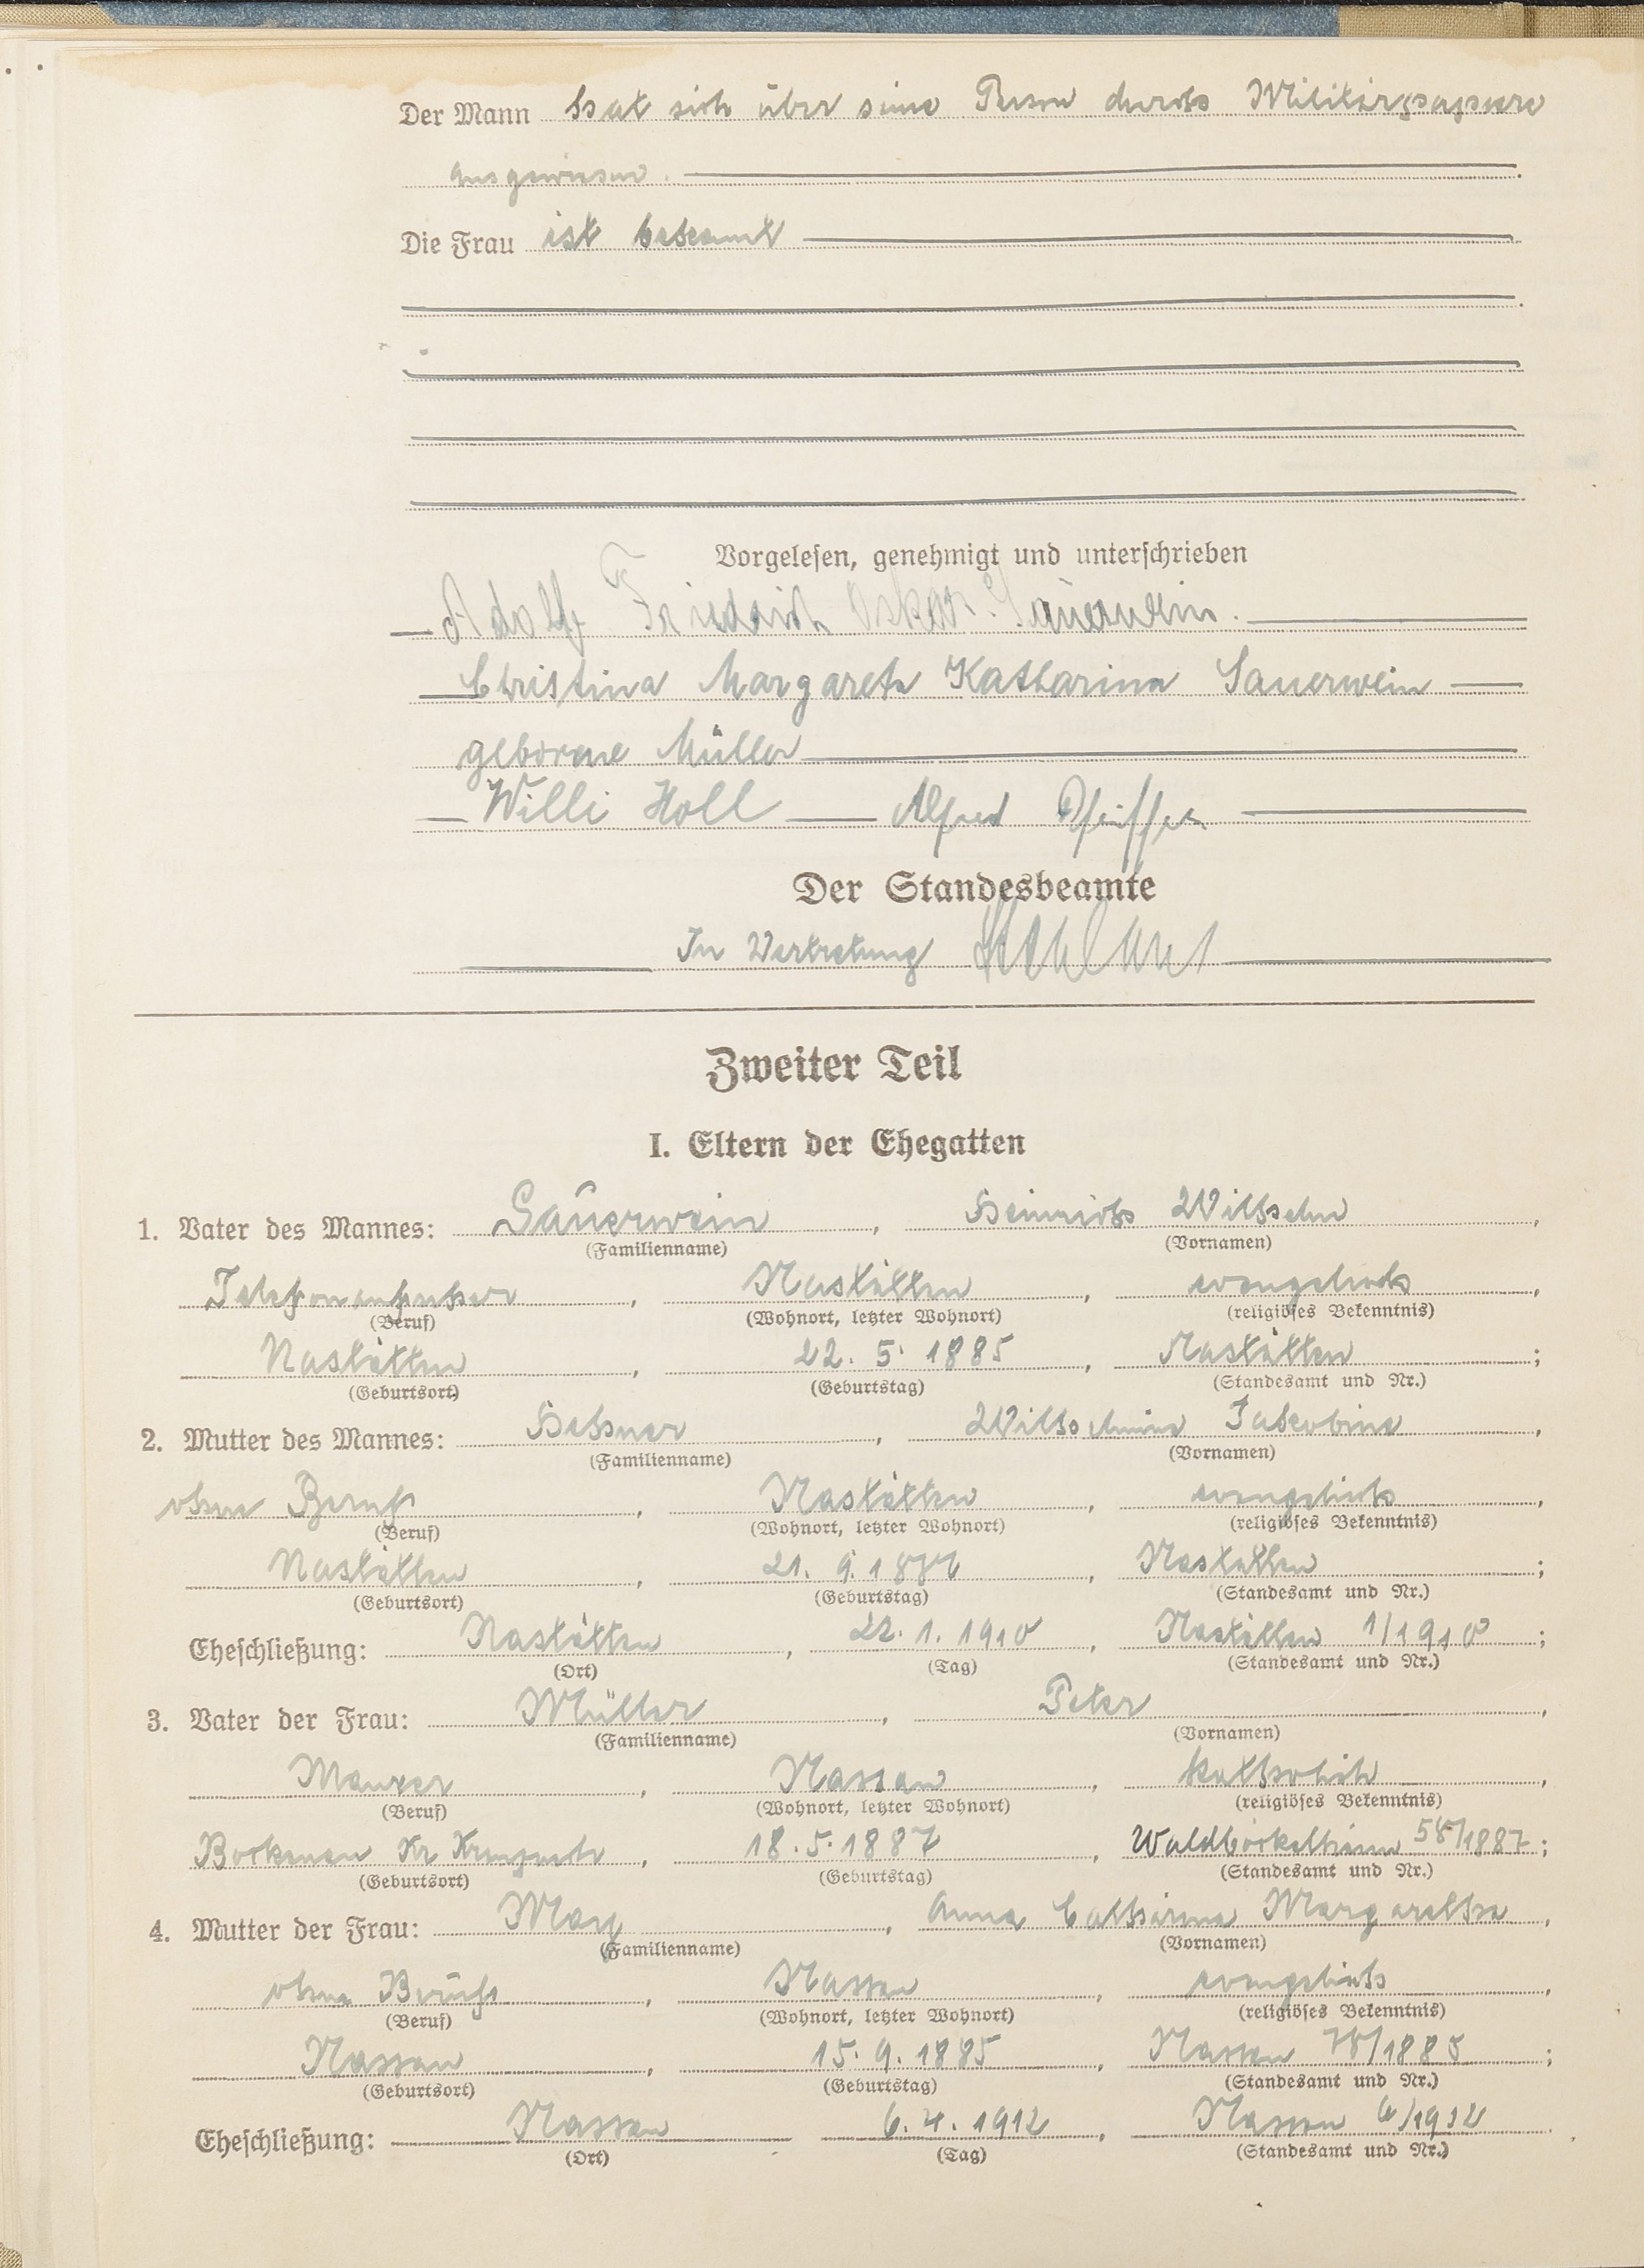 Der Mann hat sich über seine Person durch Militärpapiere
ausgewiesen.
Die Frau ist bekannt
Vorgelesen, genehmigt und unterschrieben
Adolf Friedrich Oskar Sauerwein.
Christina Margareta Katharina Sauerwein
geborne Müller
Willi Holl — Alfred Pfeiffer
Der Standesbeamte
In Vertretung
Zweiter Teil
I. Eltern der Ehegatten
1. Vater des Mannes: Sauerwein, Heinrich Wilhelm,
(Familienname) (Vornamen)
Nastätten, evangelisch,
(Beruf) (Wohnort, letzter Wohnort) (religiöses Bekenntnis)
Nastätten, 22. 5. 1885, Nastätten;
(Geburtsort) (Geburtstag) (Standesamt und Nr.)
2. Mutter des Mannes: Heßner, Wilhelmine Jakobine,
(Familienname) (Vornamen)
ohne Beruf, Nastätten, evangelisch,
(Beruf) (Wohnort, letzter Wohnort) (religiöses Bekenntnis)
Nastätten, 21. 9. Nastätten;
(Geburtsort) (Geburtstag) (Standesamt und Nr.)
Eheschließung: Nastätten, 22. 1. 1910, Nastätten 1/1910;
(Ort) (Tag) (Standesamt und Nr.)
3. Vater der Frau: Müller, Peter,
(Familienname) (Vornamen)
Maurer, Nassau, katholisch,
(Beruf) (Wohnort, letzter Wohnort) (religiöses Bekenntnis)
Bockenau Kr Kreuznach, 18. 5. 1887, Waldböckelheim 58/1887;
(Geburtsort) (Geburtstag) (Standesamt und Nr.)
4. Mutter der Frau: May, Anna Catharina Margaretha,
(Familienname) (Vornamen)
ohne Beruf, Nassau, evangelisch,
(Beruf) (Wohnort, letzter Wohnort) (religiöses Bekenntnis)
Nassau, 15. 9. 1885, Nassau 78/1885;
(Geburtsort) (Geburtstag) (Standesamt und Nr.)
Eheschließung: Nassau 6. 4. 1912, Nassau 6/1912.
(Ort) (Tag) (Standesamt und Nr.)